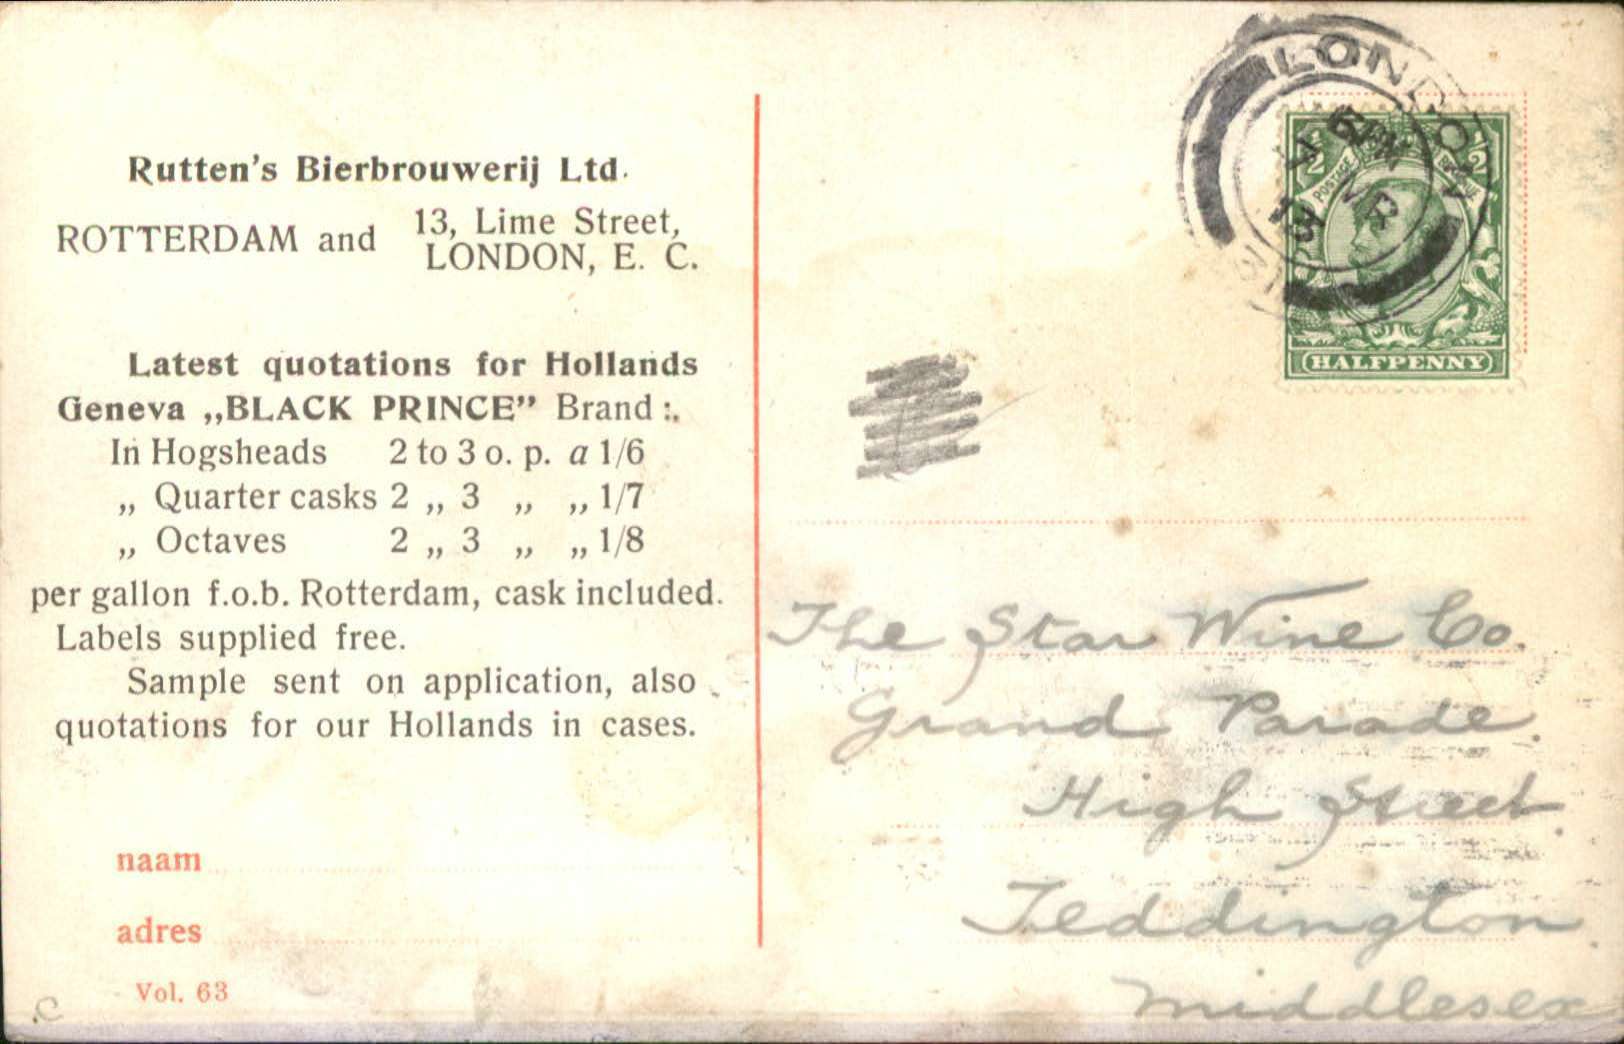 Rutten's Bierbrouwerij Ltd.
ROTTERDAM and 13, Lime Street,
LONDON, E. C.
Latest quotations for Hollands
Geneva „BLACK PRINCE” Brand :.
In Hogsheads 2 to 3 o. p. a 1/6
„ Quarter casks 2 „ 3 „ „ 1/7
„ Octaves 2 „ 3 „ „ 1/8
per gallon f.o.b. Rotterdam, cask included.
Labels supplied free.
Sample sent on application, also
quotations for our Hollands in cases.
naam
adres
Vol. 63
LONDON
6 PM
13
1/2 1/2
POSTAGE REVENUE
HALFPENNY
The Star Wine Co.
Grand Parade.
High Street.
Teddington.
Middlesex